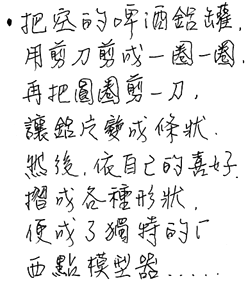 •把空的啤酒鋁罐,
用剪刀剪成一圈一圈.
再把圓圈剪一刀,
讓鋁片變成條狀.
然後,依自己的喜好.
摺成各種形狀,
便成了獨特的「
西點模型器.....